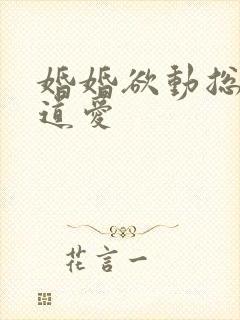 婚婚欲動总
道愛
花言一